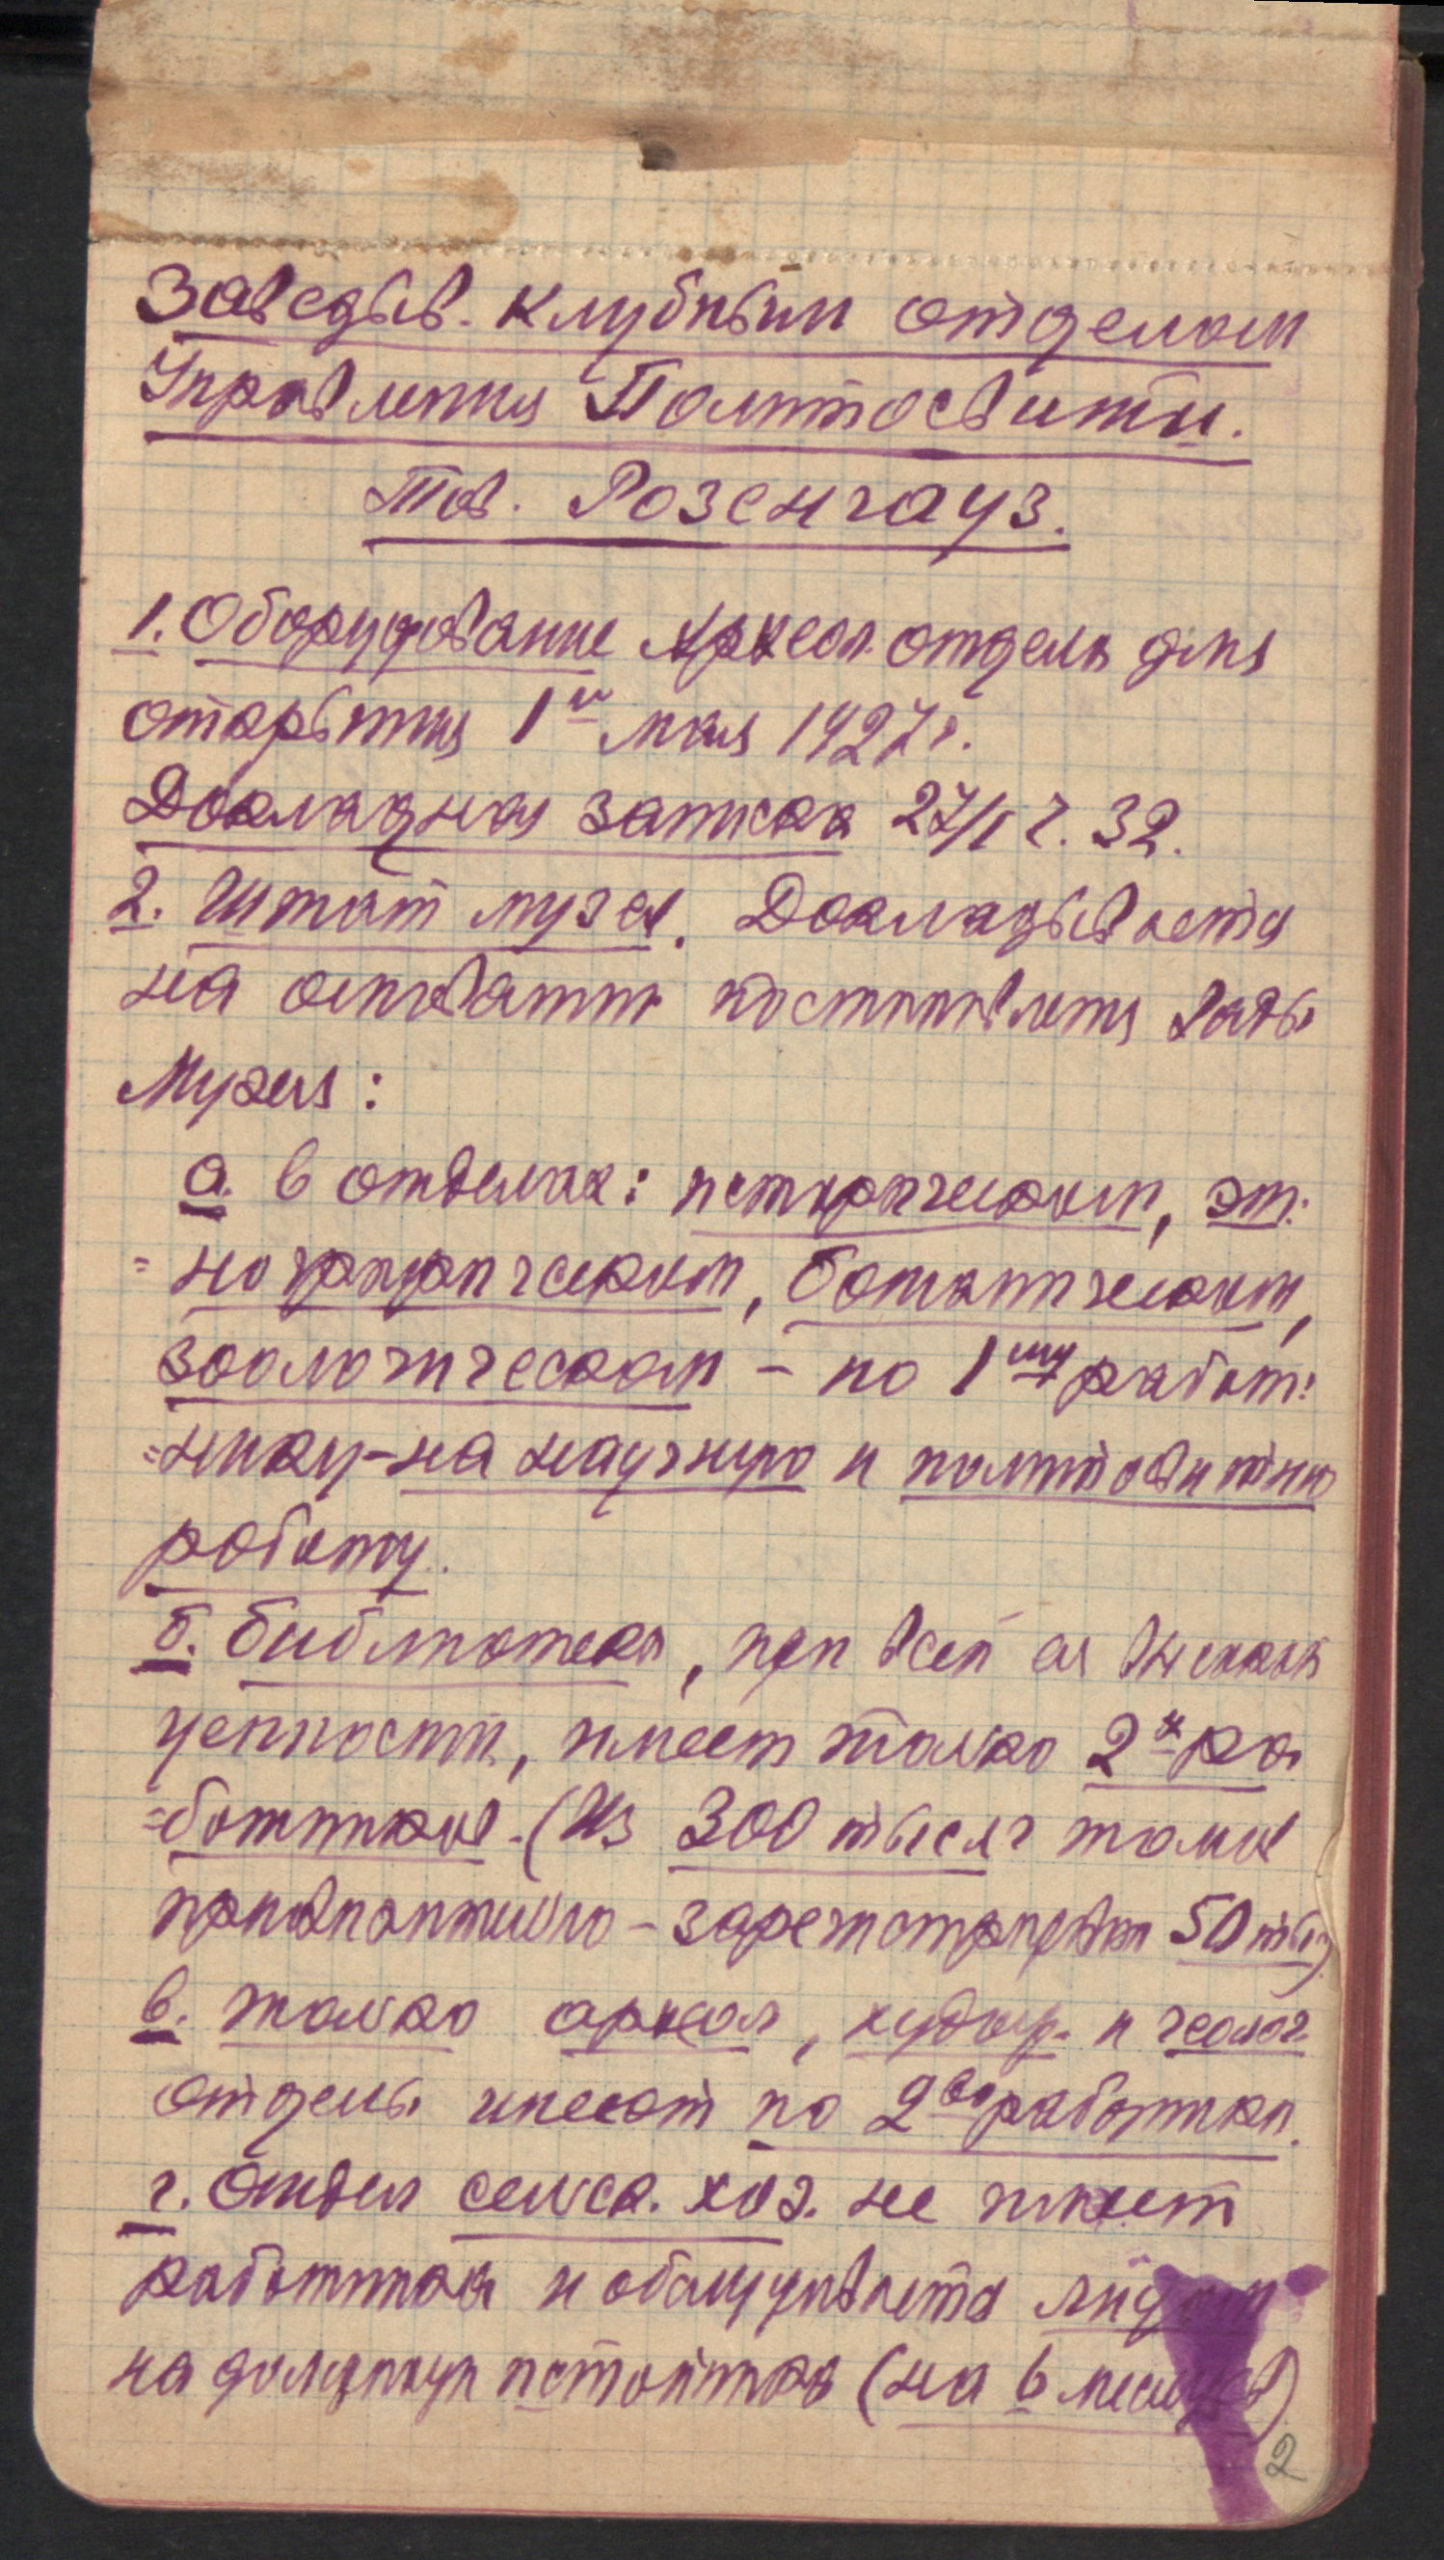 Заведыв. клубным отделом
Управления Политпросвети.
Тов. Розенгауз.
1. Оборудование Археол. отдела для
открытия 1го мая 1927 г.
Докладная записка 27/I г. 32.
2. Штат музея. Докладывается
на основании постановления
Музея:
а. в отделах: историческом, эт-
=нографическом, ботаническом,
зоологическом – по 1му работ-
=нику – на научную и политпросветит.
работу.
б. библиотека, при всей ея
ценности, имеет только 2х ра
=ботников. (Из 300 тысяч томов
– зарегистрировано 50 тыс)
в. только археол, худож. и геолог.
отделы имеют по 2 работника.
г. Отдел сельск. хоз. не имеет
работника и обслуживается
на (на 6 месяцев)
2